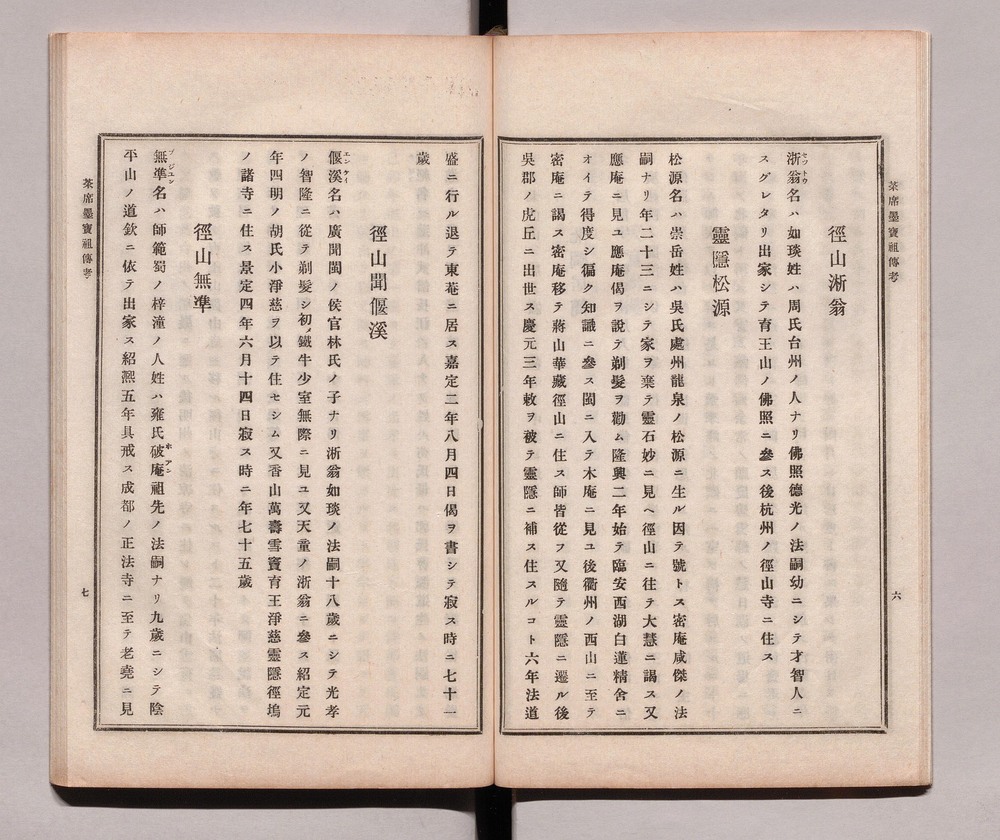 茶席墨寶祖傳考
六
徑山淅翁
淅翁名ハ如琰姓ハ周氏台州ノ人ナリ佛照德光ノ法嗣幼ニシテ才智人ニ
スグレタリ出家シテ育王山ノ佛照ニ參ス後杭州ノ徑山寺ニ住ス
靈隱松源
松源名ハ崇岳姓ハ吳氏處州龍泉ノ松源ニ生ル因テ號トス密庵咸傑ノ法
嗣ナリ年二十三ニシテ家ヲ棄テ靈石妙ニ見ヘ徑山ニ往テ大慧ニ謁ス又
應庵ニ見ユ應庵偈ヲ說テ剃髮ヲ勸ム隆興二年始テ臨安西湖白蓮精舍ニ
オイテ得度シ徧ク知識ニ參ス閩ニ入テ木庵ニ見ユ後衢州ノ西山ニ至テ
密庵ニ謁ス密庵移テ蔣山華藏徑山ニ住ス師皆從フ又隨テ靈隱ニ遷ル後
吳郡ノ虎丘ニ出世ス慶元三年敕ヲ被テ靈隱ニ補ス住スルコト六年法道
盛ニ行ル退テ東菴ニ居ス嘉定二年八月四日偈ヲ書シテ寂ス時ニ七十一
歲
徑山聞偃溪
偃溪名ハ廣聞閩ノ侯官林氏ノ子ナリ淅翁如琰ノ法嗣十八歲ニシテ光孝
ノ智隆ニ從テ剃髮シ初メ鐵牛少室無際ニ見ユ又天童ノ淅翁ニ參ス紹定元
年四明ノ胡氏小淨慈ヲ以テ住セシム又香山萬壽雪竇育王淨慈靈隱徑塢
ノ諸寺ニ住ス景定四年六月十四日寂ス時ニ年七十五歲
徑山無準
無準名ハ師範蜀ノ梓潼ノ人姓ハ雍氏破庵祖先ノ法嗣ナリ九歲ニシテ陰
平山ノ道欽ニ依テ出家ス紹熈五年具戒ス成都ノ正法寺ニ至テ老堯ニ見
茶席墨寶祖傳考
七